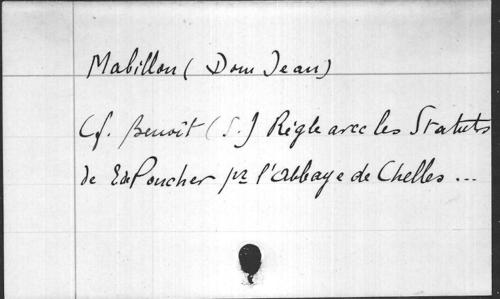 Mabillon (Dom Jean)
Cf. Benoît (S.) Règle avec les Statuts
de E. de Poncher pr l'Abbaye de Chelles ...